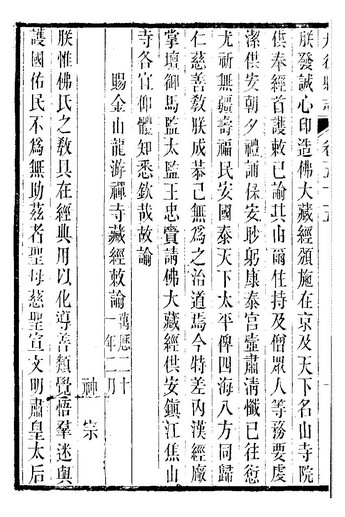 朕發誠心印造佛大藏經頒施在京及天下名山寺院
供奉經首護敕已諭其山爾住持及僧眾人等務要虔
潔供安朝夕禮誦保安眇躬康泰宮壼肅清懺已往愆
尤祈無疆壽福民安國泰天下太平俾四海八方同歸
仁慈善敎朕成恭己無爲之治道焉今特差內漢經廠
掌壇御馬監太監王忠賷請佛大藏經供安鎭江焦山
寺各宜仰體知悉欽哉故諭
賜金山龍游禪寺藏經敕諭 萬曆二十一年二月
神宗
朕惟佛氏之敎具在經典用以化導善類覺悟羣迷與
護國佑民不爲無助茲者聖母慈聖宣文明肅皇太后